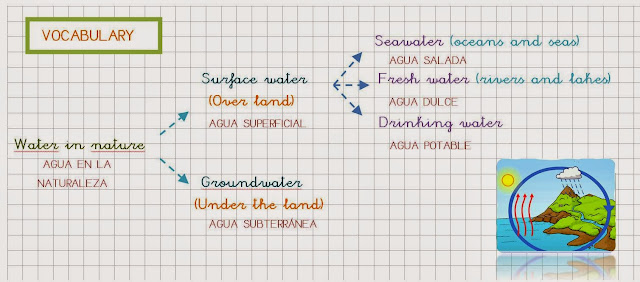 VOCABULARY
Water in nature
AGUA EN LA
NATURALEZA
Surface water
(Over land)
AGUA SUPERFICIAL
Groundwater
(Under the land)
AGUA SUBTERRÁNEA
Seawater (oceans and seas)
AGUA SALADA
Fresh water (rivers and lakes)
AGUA DULCE
Drinking water
AGUA POTABLE